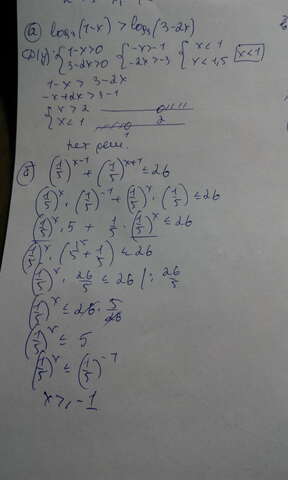 а) log₃(1-x) > log₃(3-2x)
D(y): { 1-x>0 3-2x>0 { -x>-1 -2x>-3 { x<1 x<1,5 x<1
1-x > 3-2x
-x+2x > 3-1
{ x>2 x<1
1 2
нет реш.
б) (1/5)^(x-1) + (1/5)^(x+1) ≤ 26
(1/5)^x · (1/5)^(-1) + (1/5)^x · (1/5) ≤ 26
(1/5)^x · 5 + 1/5 · (1/5)^x ≤ 26
(1/5)^x · (5 + 1/5) ≤ 26
(1/5)^x · 26/5 ≤ 26 | : 26/5
(1/5)^x ≤ 26 · 5/26
(1/5)^x ≤ 5
(1/5)^x ≤ (1/5)^(-1)
x ≥ -1